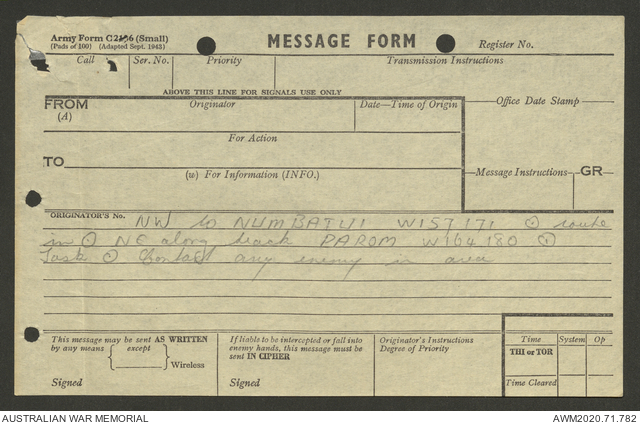 Army Form C2136 (Small)
(Pads of 100) (Adapted Sept. 1943)
MESSAGE FORM
Register No.
Call
Ser. No.
Priority
Transmission Instructions
ABOVE THIS LINE FOR SIGNALS USE ONLY
FROM
(A)
Originator
Date—Time of Origin
Office Date Stamp
For Action
TO
(w) For Information (INFO.)
Message Instructions
GR
ORIGINATOR'S No.
NW to NUMBATUI W157171 ⊙ route
in ⊙ NE along track PAROM W164180 ⊙
Task ⊙ Contact any enemy in area
This message may be sent AS WRITTEN
by any means except
Wireless
Signed
If liable to be intercepted or fall into
enemy hands, this message must be
sent IN CIPHER
Signed
Originator's Instructions
Degree of Priority
Time
System
Op
THI or TOR
Time Cleared
AUSTRALIAN WAR MEMORIAL
AWM2020.71.782